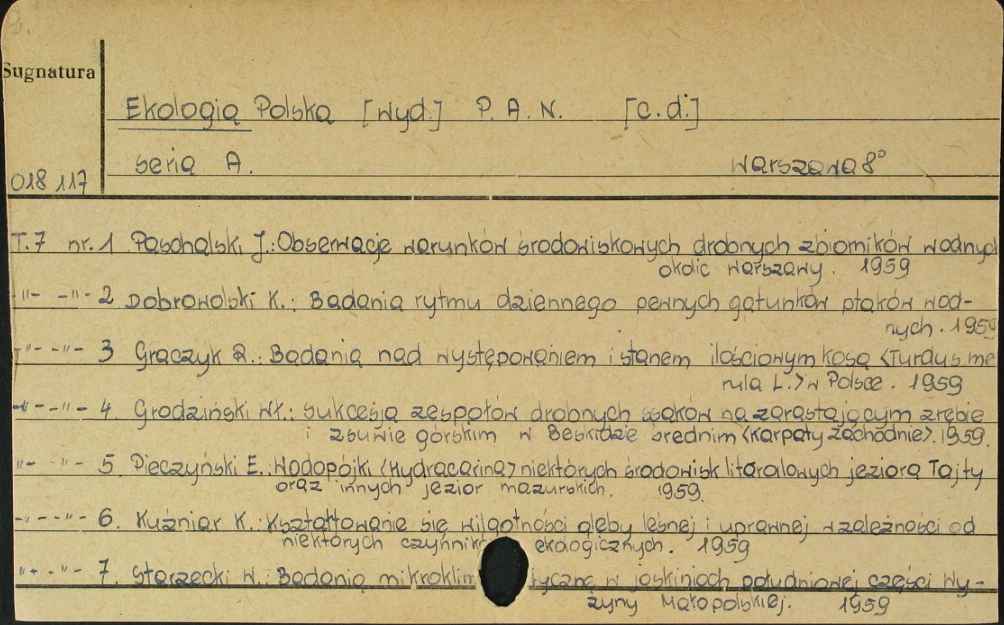 Sygnatura
Ekologia Polska [wyd.] P. A. N. [c. d.]
seria A. Warszawa 8°
018 117
T. 7 nr. 1 Paschalski J.: Obserwacje warunków środowiskowych drobnych zbiorników wodnych
okolic Warszawy. 1959
-"- -"- 2 Dobrowolski K.: Badania rytmu dziennego pewnych gatunków ptaków wod-
nych. 1959
-"- -"- 3 Graczyk R.: Badania nad występowaniem i stanem ilościowym kosa <Turdus me
rula L.> w Polsce. 1959
-"- -"- 4. Grodziński Wł.: Sukcesja zespołów drobnych ssaków na zarastającym zrębie
i zsuwie górskim w Beskidzie średnim <Karpaty Zachodnie>. 1959.
-"- -"- 5 Pieczyński E.: Wodopójki <Hydracarina> niektórych środowisk litoralowych jeziora Tajty
oraz innych jezior mazurskich. 1959.
-"- -"- 6. Kuźniar K.: Kształtowanie się wilgotności gleby leśnej i uprawnej w zależności od
niektórych czynnikó ekologicznych. 1959
-"- -"- 7. Starzecki W.: Badania mikroklim tyczne w jaskiniach południowej części Wy-
żyny Małopolskiej. 1959